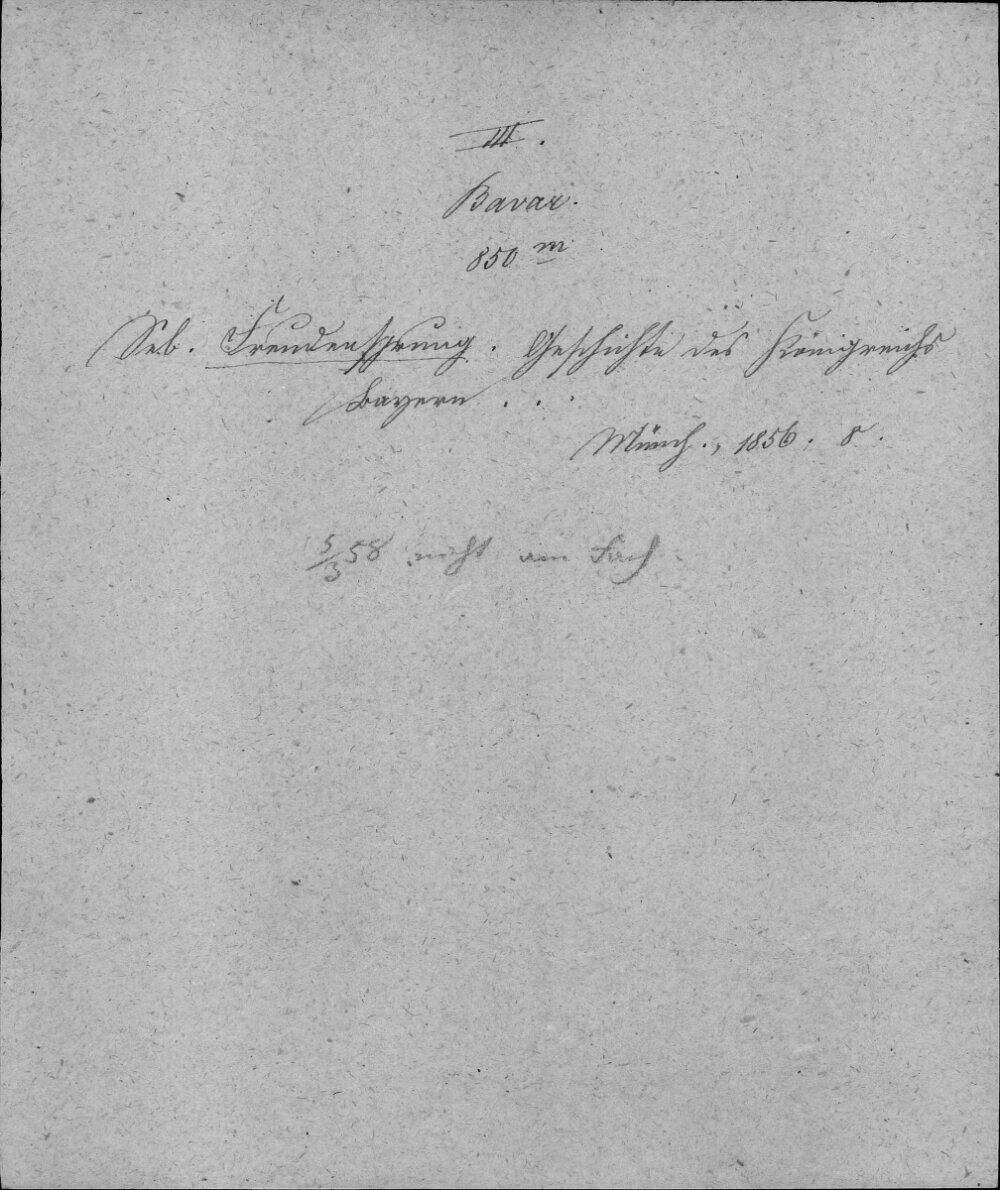 III.
Bavar.
850 m
Seb. Freudensprung. Geschichte des Königreichs
Bayern . . .
Münch., 1856. 8.
5/3 58 nicht am Fach